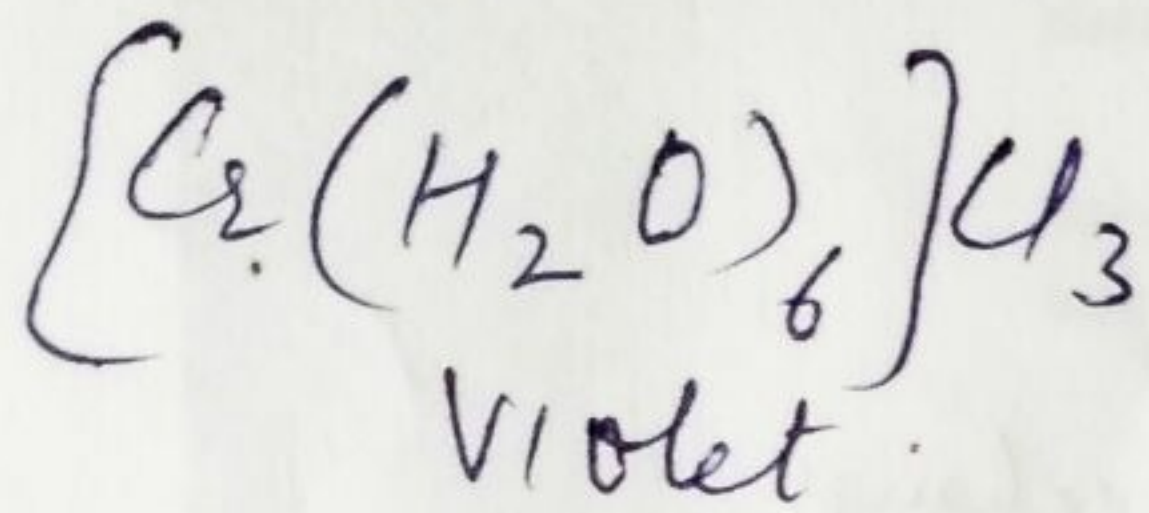 [Cr(H2O)6]Cl3
Violet.